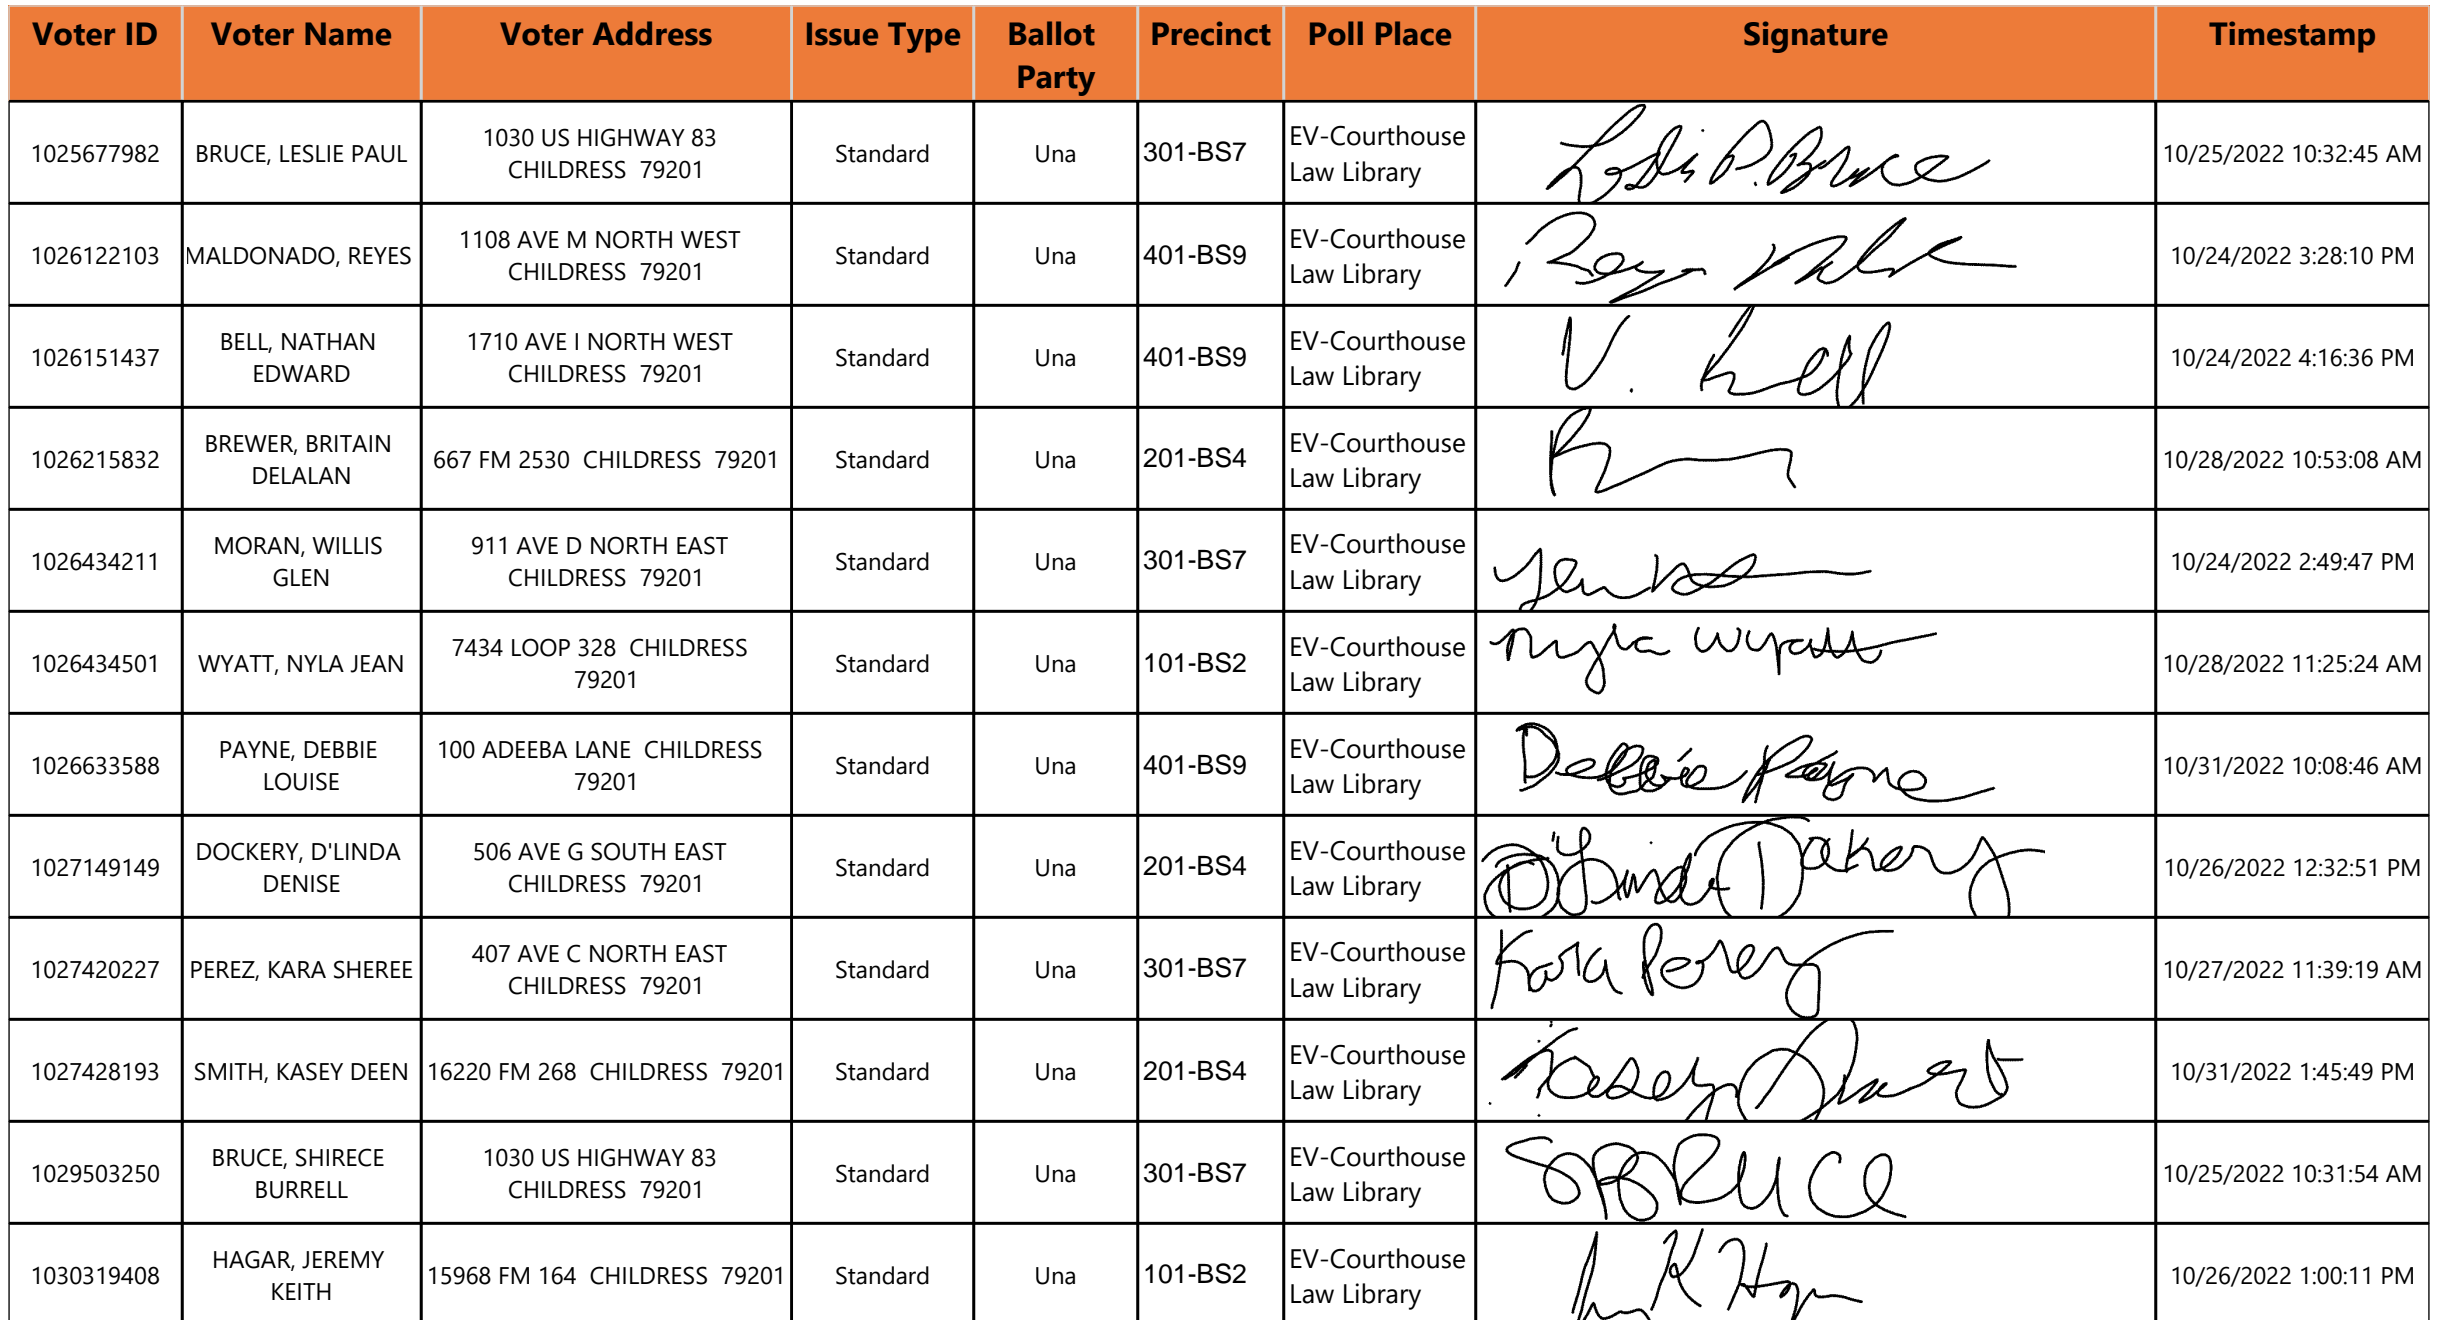 Voter ID
Voter Name
Voter Address
Issue Type
Ballot
Party
Precinct
Poll Place
Signature
Timestamp
1025677982
BRUCE, LESLIE PAUL
1030 US HIGHWAY 83
CHILDRESS 79201
Standard
Una
301-BS7
EV-Courthouse
Law Library
Leslie P. Bruce
10/25/2022 10:32:45 AM
1026122103
MALDONADO, REYES
1108 AVE M NORTH WEST
CHILDRESS 79201
Standard
Una
401-BS9
EV-Courthouse
Law Library
10/24/2022 3:28:10 PM
1026151437
BELL, NATHAN
EDWARD
1710 AVE I NORTH WEST
CHILDRESS 79201
Standard
Una
401-BS9
EV-Courthouse
Law Library
10/24/2022 4:16:36 PM
1026215832
BREWER, BRITAIN
DELALAN
667 FM 2530 CHILDRESS 79201
Standard
Una
201-BS4
EV-Courthouse
Law Library
10/28/2022 10:53:08 AM
1026434211
MORAN, WILLIS
GLEN
911 AVE D NORTH EAST
CHILDRESS 79201
Standard
Una
301-BS7
EV-Courthouse
Law Library
10/24/2022 2:49:47 PM
1026434501
WYATT, NYLA JEAN
7434 LOOP 328 CHILDRESS
79201
Standard
Una
101-BS2
EV-Courthouse
Law Library
Nyla Wyatt
10/28/2022 11:25:24 AM
1026633588
PAYNE, DEBBIE
LOUISE
100 ADEEBA LANE CHILDRESS
79201
Standard
Una
401-BS9
EV-Courthouse
Law Library
Debbie Payne
10/31/2022 10:08:46 AM
1027149149
DOCKERY, D'LINDA
DENISE
506 AVE G SOUTH EAST
CHILDRESS 79201
Standard
Una
201-BS4
EV-Courthouse
Law Library
D'Linda Dockery
10/26/2022 12:32:51 PM
1027420227
PEREZ, KARA SHEREE
407 AVE C NORTH EAST
CHILDRESS 79201
Standard
Una
301-BS7
EV-Courthouse
Law Library
Kara Perez
10/27/2022 11:39:19 AM
1027428193
SMITH, KASEY DEEN
16220 FM 268 CHILDRESS 79201
Standard
Una
201-BS4
EV-Courthouse
Law Library
Kasey
10/31/2022 1:45:49 PM
1029503250
BRUCE, SHIRECE
BURRELL
1030 US HIGHWAY 83
CHILDRESS 79201
Standard
Una
301-BS7
EV-Courthouse
Law Library
SBBRUCE
10/25/2022 10:31:54 AM
1030319408
HAGAR, JEREMY
KEITH
15968 FM 164 CHILDRESS 79201
Standard
Una
101-BS2
EV-Courthouse
Law Library
10/26/2022 1:00:11 PM